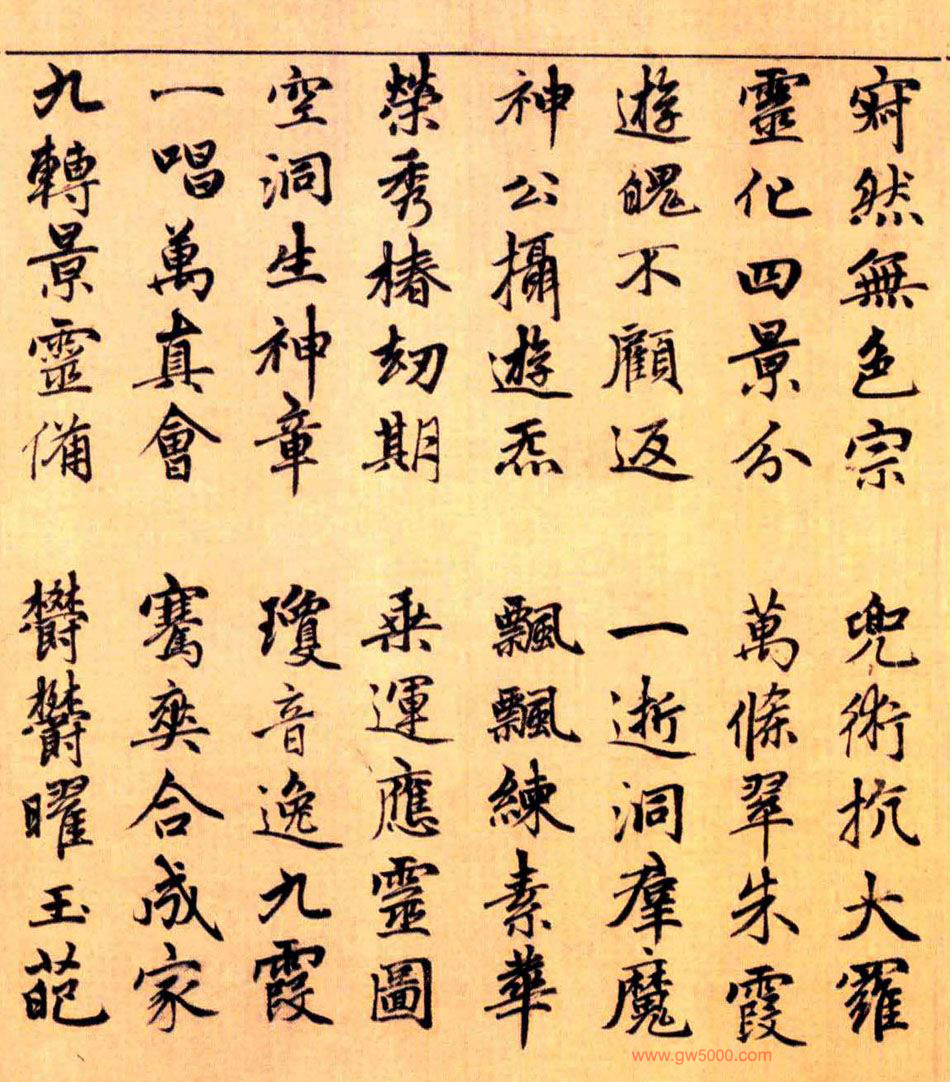 寂然無色宗 兜術抗大羅
靈化四景分 萬條翠朱霞
遊魄不顧返 一逝洞群魔
神公攝遊炁 飄飄練素華
榮秀椿劫期 乘運應靈圖
空洞生神章 瓊音逸九霞
一唱萬真會 騫爽合成家
九轉景靈備 欝欝曜玉葩
www.gw5000.com